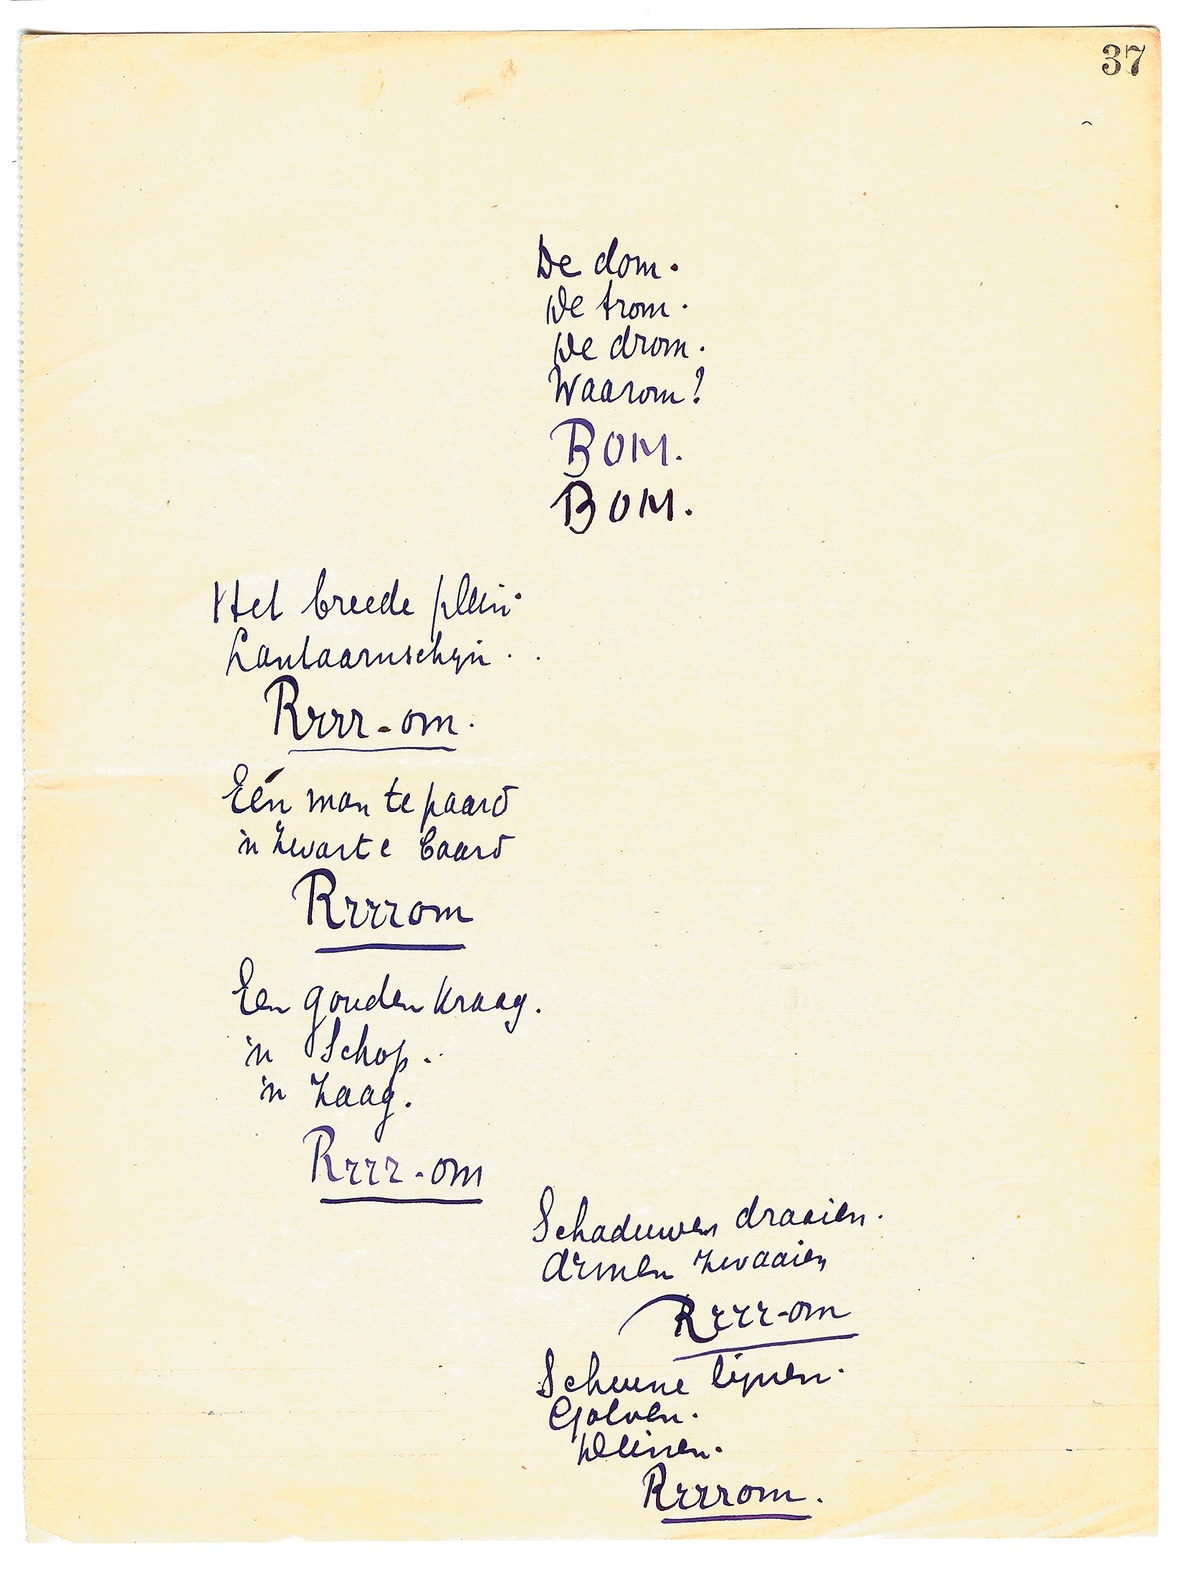 37
De dom.
De trom.
De drom.
Waarom?
BOM.
BOM.
Het breede plein.
Lantaarnschijn . .
Rrrr-om.
Eén man te paard
'n zwarte baard
Rrrrom
Een gouden kraag.
'n Schop.
'n Zaag.
Rrrr-om
Schaduwen draaien.
Armen zwaaien
Rrrr-om
Scheeve lijnen.
Golven.
pleinen.
Rrrrom.